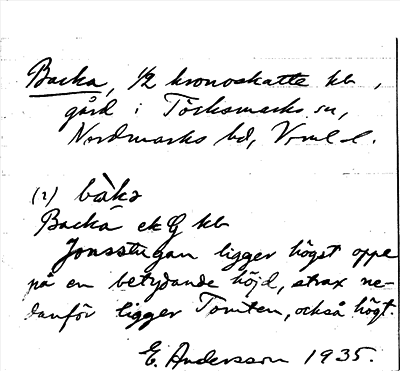 Backa, 1/2 kronoskatte hb,
gård i Töcksmarks sn,
Nordmarks hd, Vrml l.
(1) bàkə
Backa ek G hb
Jonsstugan ligger högst oppe
på en betydande höjd, strax ne-
danför ligger Tomten, också högt.
E. Andersson 1935.